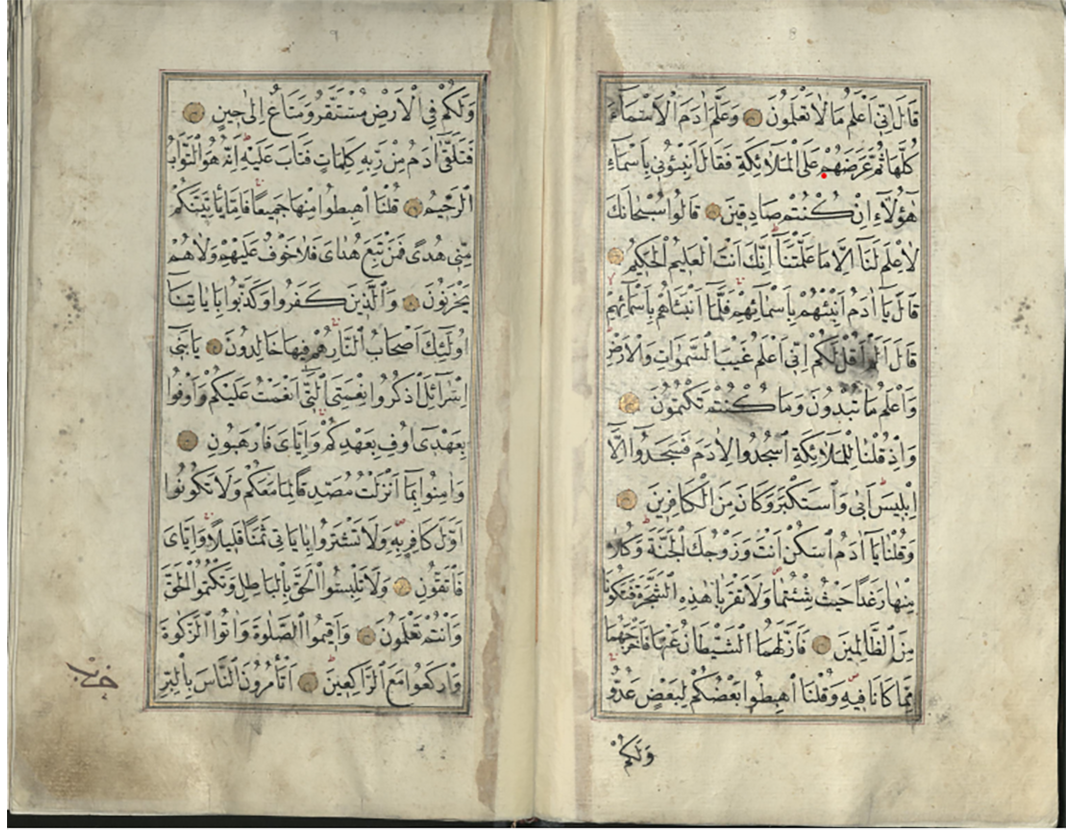 قَالَ اِنّٖي اَعْلَمُ مَا لَا تَعْلَمُونَ وَعَلَّمَ اٰدَمَ الْاَسْمَٓاءَ
كُلَّهَا ثُمَّ عَرَضَهُمْ عَلَى الْمَلَٓائِكَةِ فَقَالَ اَنْبِؤُنٖي بِاَسْمَٓاءِ
هٰٓؤُلَٓاءِ اِنْ كُنْتُمْ صَادِقٖينَ قَالُوا سُبْحَانَكَ
لَا عِلْمَ لَنَٓا اِلَّا مَا عَلَّمْتَنَٓا اِنَّكَ اَنْتَ الْعَلٖيمُ الْحَكٖيمُ
قَالَ يَٓا اٰدَمُ اَنْبِئْهُمْ بِاَسْمَٓائِهِمْ فَلَمَّٓا اَنْبَاَهُمْ بِاَسْمَٓائِهِمْ
قَالَ اَلَمْ اَقُلْ لَكُمْ اِنّٖٓي اَعْلَمُ غَيْبَ السَّمٰوَاتِ وَالْاَرْضِ
وَاَعْلَمُ مَا تُبْدُونَ وَمَا كُنْتُمْ تَكْتُمُونَ
وَاِذْ قُلْنَا لِلْمَلَٓائِكَةِ اسْجُدُوا لِاٰدَمَ فَسَجَدُٓوا اِلَّٓا
اِبْلٖيسَ اَبٰى وَاسْتَكْبَرَ وَكَانَ مِنَ الْكَافِرٖينَ
وَقُلْنَا يَٓا اٰدَمُ اسْكُنْ اَنْتَ وَزَوْجُكَ الْجَنَّةَ وَكُلَا
مِنْهَا رَغَدًا حَيْثُ شِئْتُمَا وَلَا تَقْرَبَا هٰذِهِ الشَّجَرَةَ فَتَكُونَا
مِنَ الظَّالِمٖينَ فَاَزَلَّهُمَا الشَّيْطَانُ عَنْهَا فَاَخْرَجَهُمَا
مِمَّا كَانَا فٖيهِ وَقُلْنَا اهْبِطُوا بَعْضُكُمْ لِبَعْضٍ عَدُوٌّ
وَلَكُمْ
وَلَكُمْ فِي الْاَرْضِ مُسْتَقَرٌّ وَمَتَاعٌ اِلٰى حٖينٍ
فَتَلَقّٰٓى اٰدَمُ مِنْ رَبِّهٖ كَلِمَاتٍ فَتَابَ عَلَيْهِ اِنَّهُ هُوَ التَّوَّابُ
الرَّحٖيمُ قُلْنَا اهْبِطُوا مِنْهَا جَمٖيعًا فَاِمَّا يَاْتِيَنَّكُمْ
مِنّٖي هُدًى فَمَنْ تَبِعَ هُدَايَ فَلَا خَوْفٌ عَلَيْهِمْ وَلَا هُمْ
يَحْزَنُونَ وَالَّذٖينَ كَفَرُوا وَكَذَّبُوا بِاٰيَاتِنَٓا
اُولٰٓئِكَ اَصْحَابُ النَّارِ هُمْ فٖيهَا خَالِدُونَ يَا بَنٖٓي
اِسْرَٓائِلَ اذْكُرُوا نِعْمَتِيَ الَّتٖٓي اَنْعَمْتُ عَلَيْكُمْ وَاَوْفُوا
بِعَهْدٖٓي اُوفِ بِعَهْدِكُمْ وَاِيَّايَ فَارْهَبُونِ
وَاٰمِنُوا بِمَٓا اَنْزَلْتُ مُصَدِّقًا لِمَا مَعَكُمْ وَلَا تَكُونُٓوا
اَوَّلَ كَافِرٍ بِهٖ وَلَا تَشْتَرُوا بِاٰيَاتٖي ثَمَنًا قَلٖيلًا وَاِيَّايَ
فَاتَّقُونِ وَلَا تَلْبِسُوا الْحَقَّ بِالْبَاطِلِ وَتَكْتُمُوا الْحَقَّ
وَاَنْتُمْ تَعْلَمُونَ وَاَقٖيمُوا الصَّلٰوةَ وَاٰتُوا الزَّكٰوةَ
وَارْكَعُوا مَعَ الرَّاكِعٖينَ اَتَاْمُرُونَ النَّاسَ بِالْبِرِّ
حزب